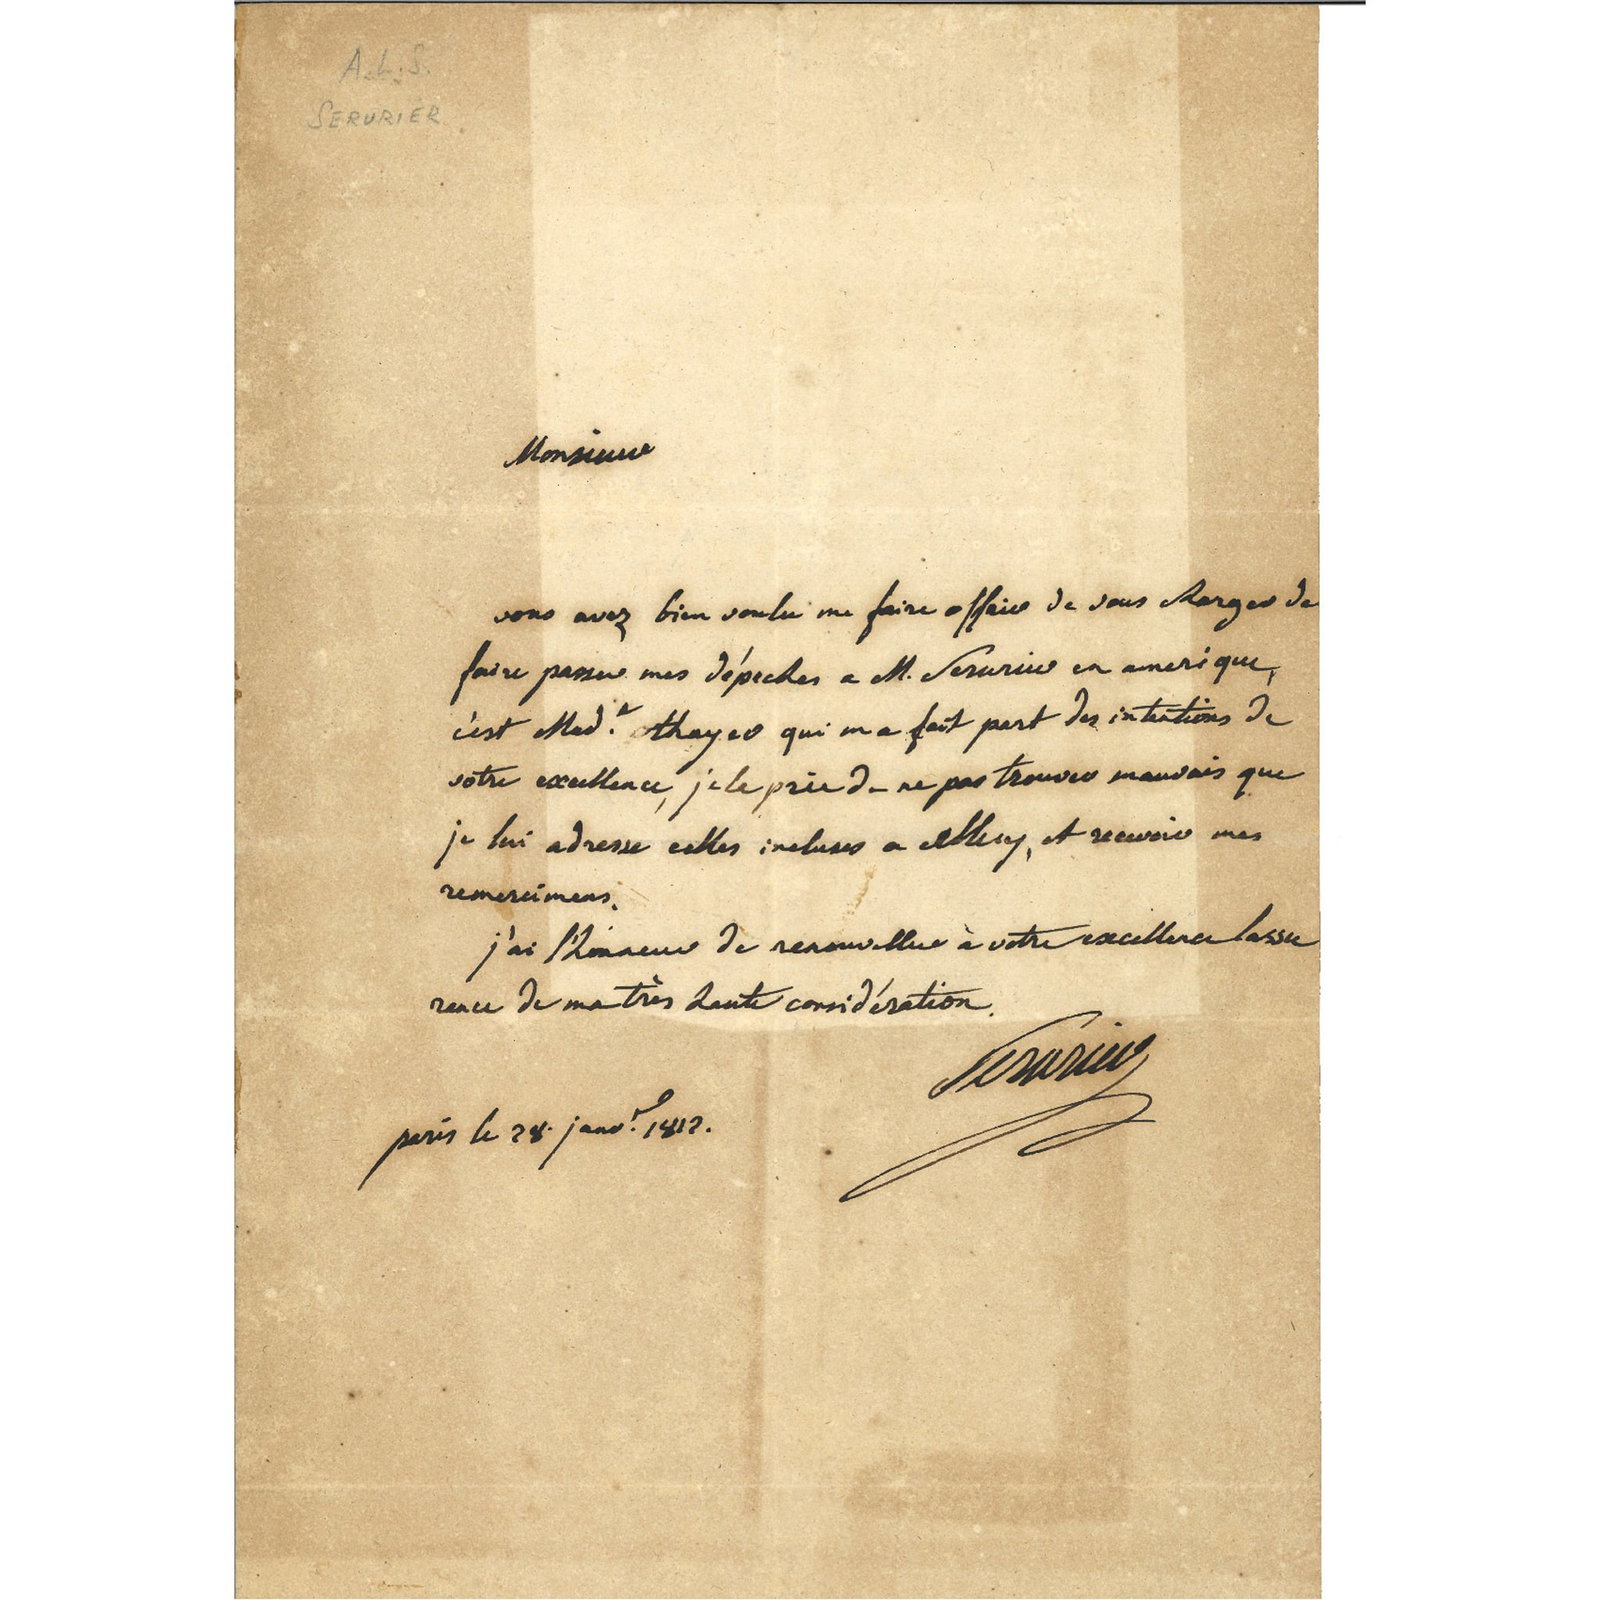 A.L.S.
SERURIER
Monsieur
vous avez bien voulu me faire offrir de vous charger de
faire passer mes dépeches a M. Serurier en amerique,
c'est Mad.e thayer qui ma fait part des intentions de
votre excellence, je le prie de ne pas trouver mauvais que
je lui adresse celles incluses a et recevoir mes
remercimens.
j'ai l'honneur de renouveller à votre excellence lassu
rance de ma très haute considération.
Serurier
paris le 28. janv.er 1812.